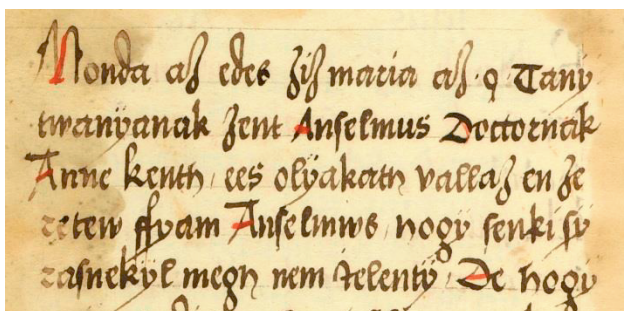 Monda aз edes ziз maria aз ꝙ Tany
twanÿanak zent Anselmus Doctornak
Anne kenth ees olÿakath vallaz en ze
retew ffyam Anselmws hogÿ senki sy
rasnekÿl megh nem ielentÿ De hogÿ